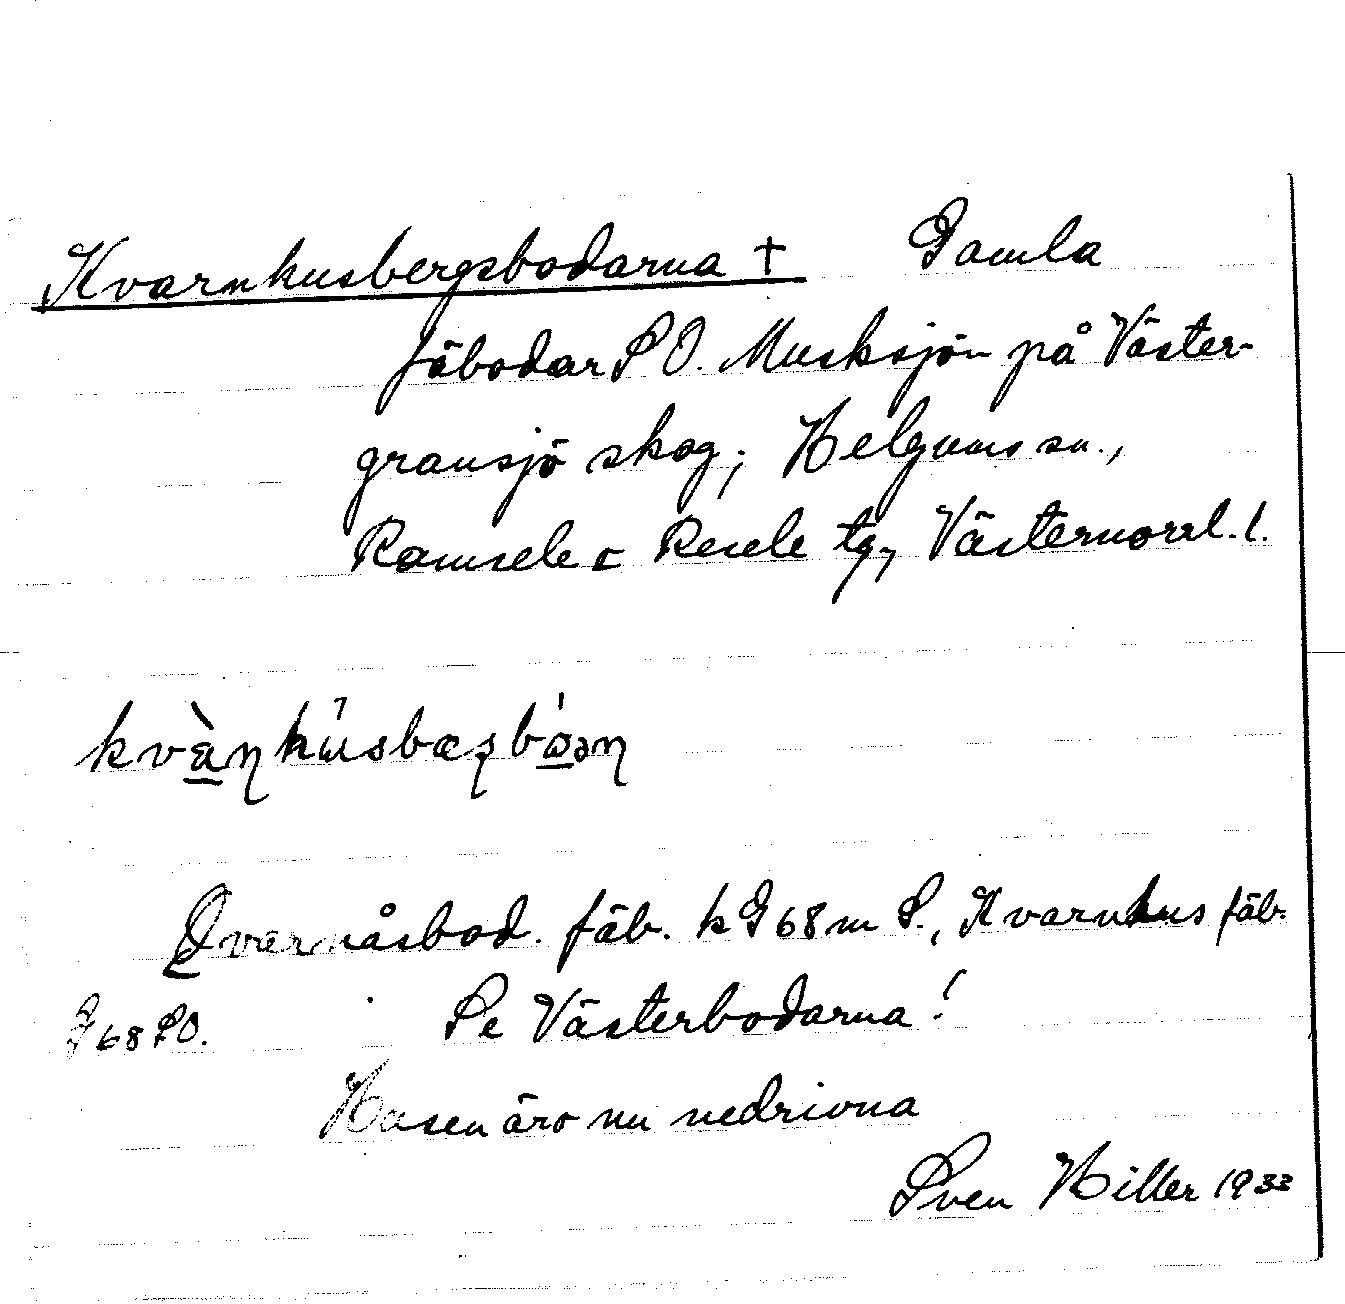 Kvarnhusbergsbodarna † Gamla
fäbodar SO. Musksjön på Väster-
gransjö skog; Helgums sn.,
Ramsele o Resele tg, Västernorrl. l.
kvànhùsbæșbóən
Qvarnåsbod. fäb. k G 68 m S., Kvarnhus fäb.
G 68 SO. Se Västerbodarna!
Husen äro nu nedrivna
Sven Hiller 1933